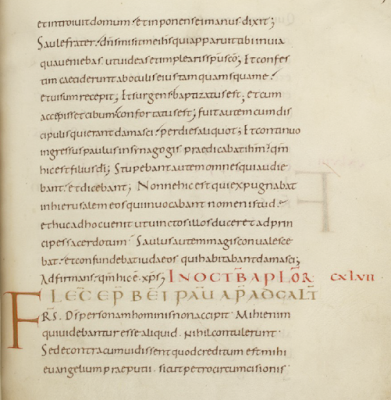 et introiuit domum · et inponens ei manus dixit;
Saule frater · dn̄s misit me ih̄s qui apparuit tibi in uia
qua ueniebas · ut uideas et implearis sp̄u sc̄o; Et confes
tim ceciderunt ab oculis eius tamquam squamę ·
et uisum recepit; Et surgens baptizatus est, et cum
accepisset cibum confortatus est; fuit autem cum dis
cipulis qui erant damasci · per dies aliquot; Et continuo
ingressus paulus in synagogis praedicabat ih̄m · qm̄
hic est filius dī; Stupebant autem omnes qui audie
bant · et dicebant; Nonne hic est qui expugnabat
in hierusalem eos qui inuocabant nomen istud ·
et huc ad hoc uenit ut uinctos illos duceret ad prin
cipes sacerdotum · Saulus autem magis conualesce
bat · et confundebat iudaeos qui habitabant damasci;
Adfirmans · qm̄ hic ē xp̄s; IN OCT̄B APLOR CXLVII
F LEC̄ EP̄ BEĪ PAU AP̄ AD GALT̄
RS. Ds personam hominis non accipit · Mihi enim
qui uidebantur esse aliquid · nihil contulerunt ·
Sed e contra cum uidissent quod creditum est mihi
euangelium praeputii · sicut petro circumcisionis